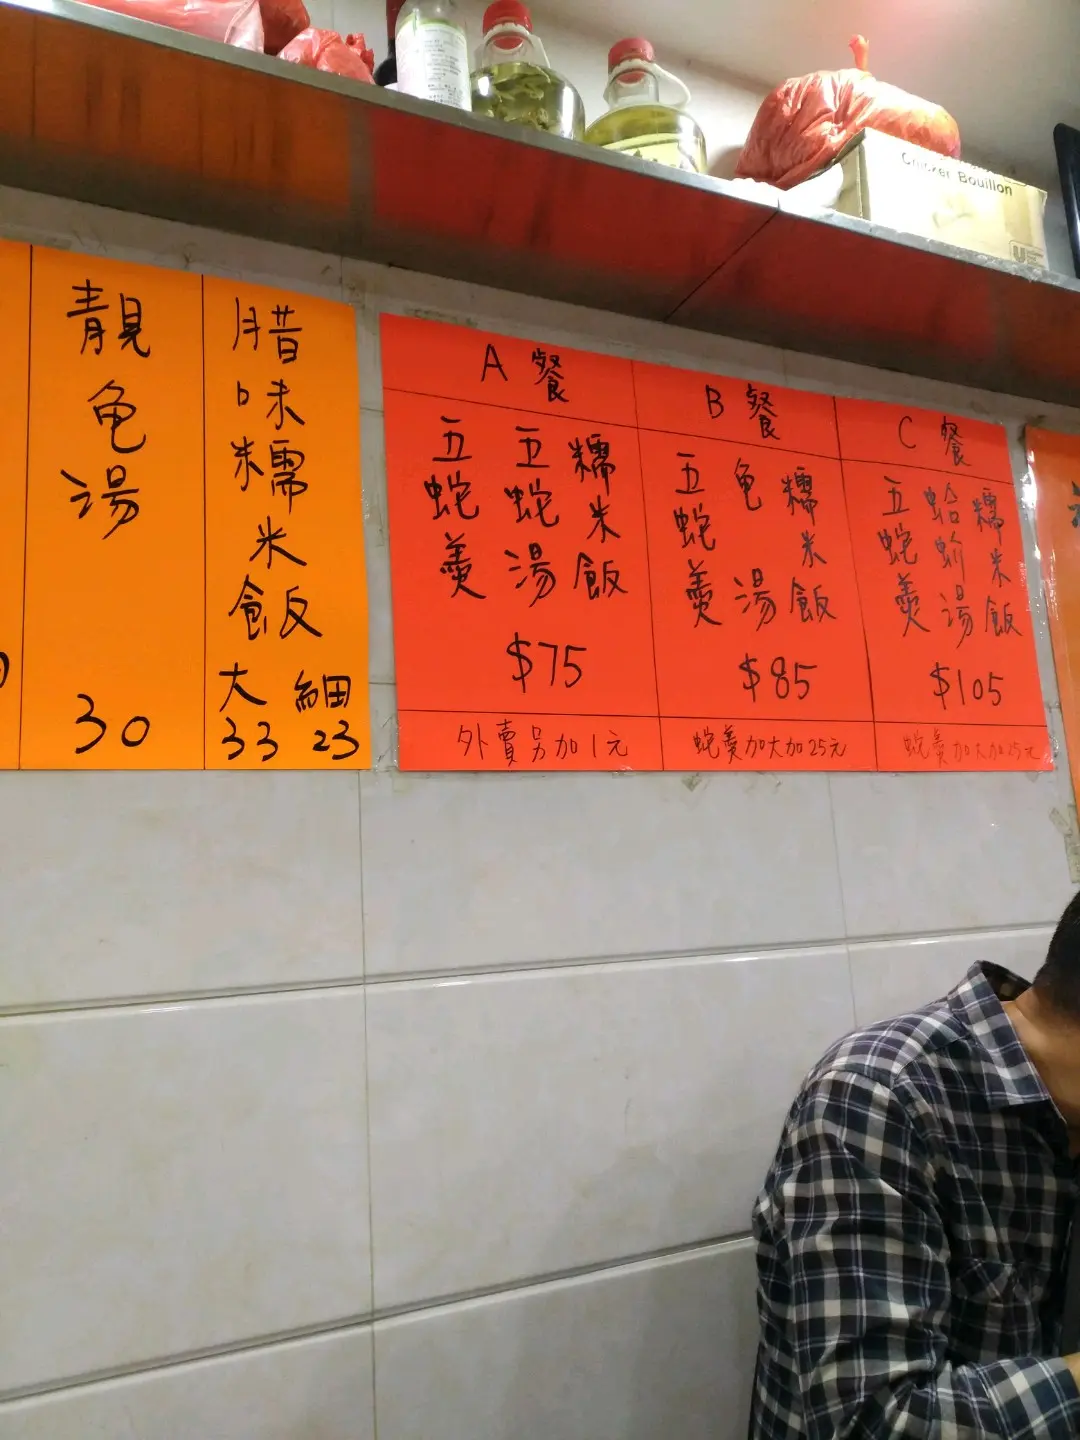 Chicken Bouillon
靚龜湯
30
腊味糯米飯
大 細
33 23
A 餐
五蛇羹
五蛇湯
糯米飯
$75
外賣另加1元
B 餐
五蛇羹
龜湯
糯米飯
$85
蛇羹加大加25元
C 餐
五蛇羹
蛤蚧湯
糯米飯
$105
蛇羹加大加25元